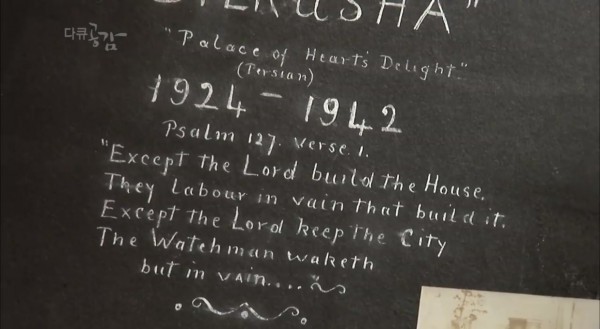 다큐공감
DILKUSHA"
"Palace of Heart's Delight."
(Persian)
1924 - 1942
Psalm 127. verse. 1.
"Except the Lord build the House,
They labour in vain that build it.
Except the Lord keep the City
The Watchman waketh
but in vain...."